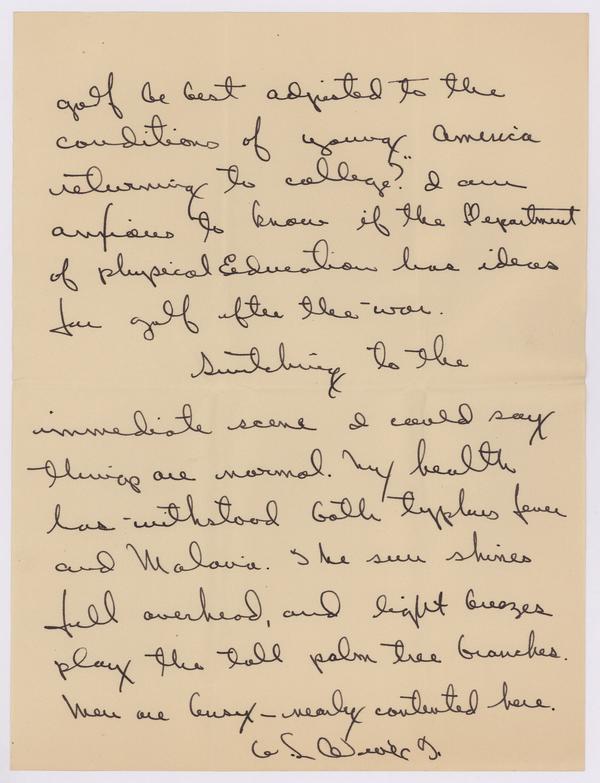 golf be best adjusted to the
conditions of young America
returning to college?" I am
anxious to know if the Department
of physical Education has ideas
for golf after the-war.
Switching to the
immediate scene I could say
things are normal. My health
has withstood both typhus fever
and Malaria. The sun shines
full overhead, and light breezes
play the tall palm tree branches.
Men are busy - nearly contented here.